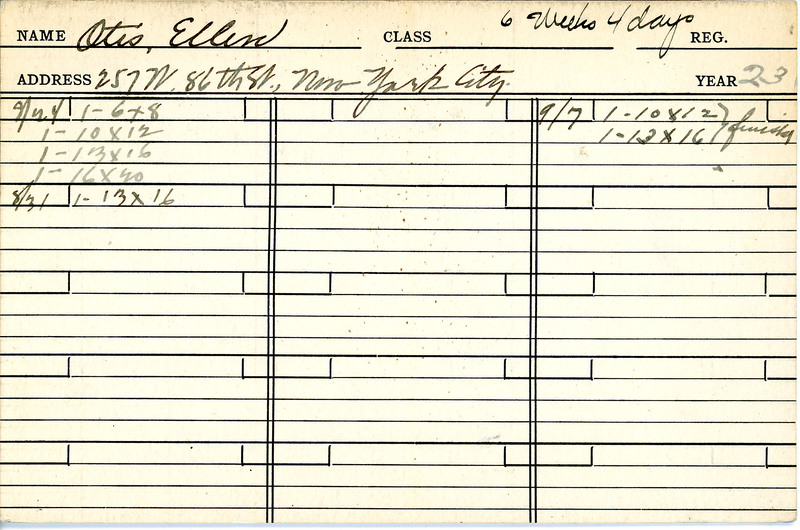 NAME Otis, Ellen CLASS 6 Weeks 4 days REG.
ADDRESS 257 W. 86th St., New York City. YEAR 23
8/24 1-6x8
1-10x12
1-13x16
1-16x20
8/31 1-13x16
9/7 1-10x12
1-13x16